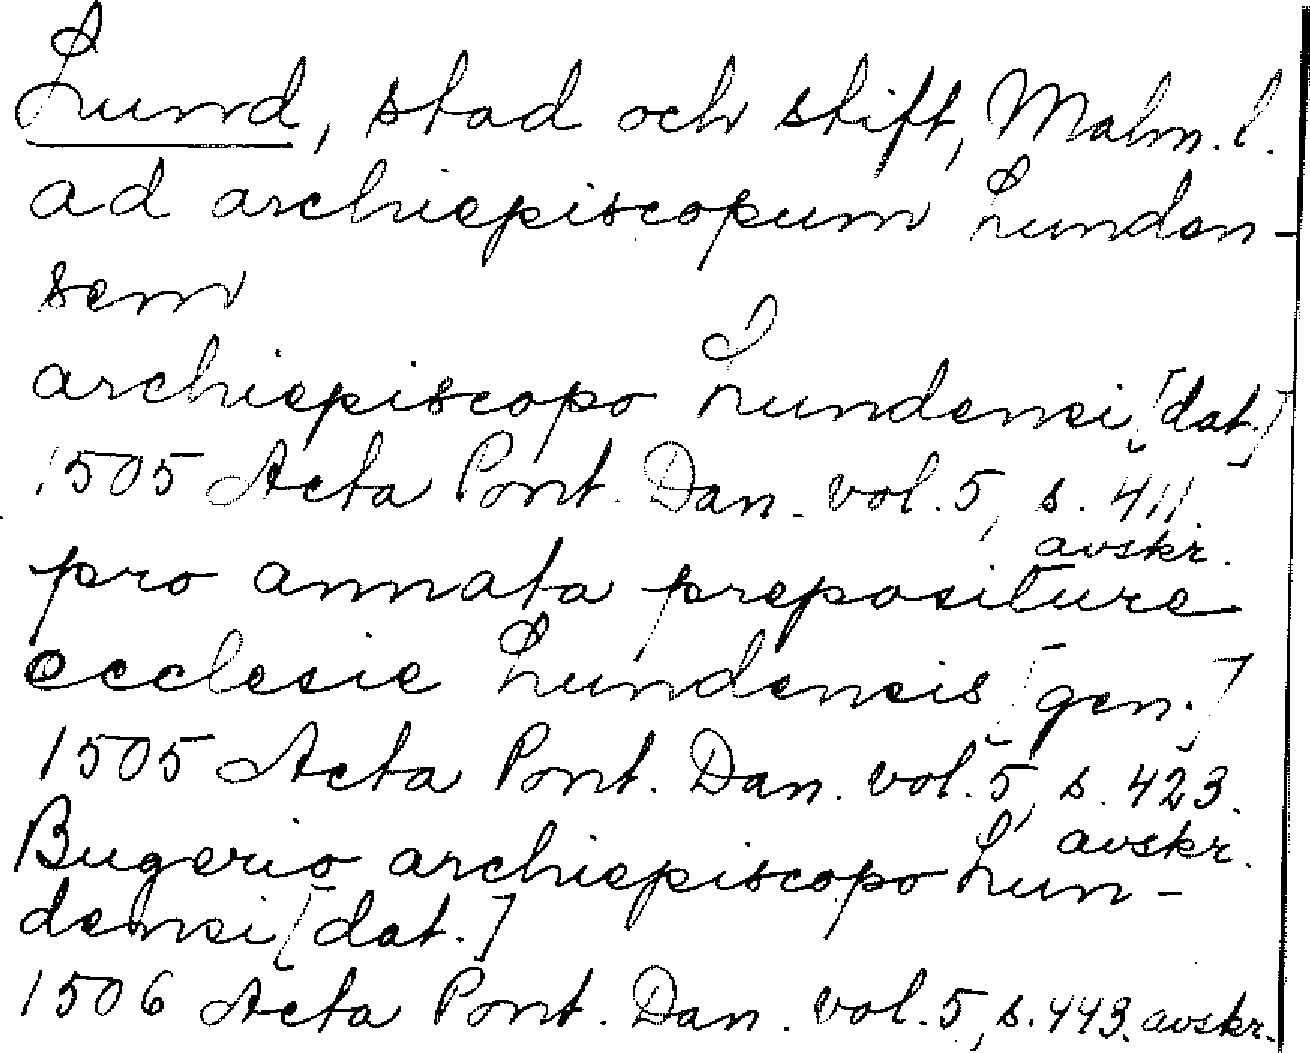 Lund, stad och stift, Malm. l.
ad archiepiscopum Lunden-
sem
archiepiscopo Lundensi [dat.]
1505 Acta Pont. Dan. vol. 5, s. 411.
avskr.
pro annata prepositure
ecclesie Lundensis [gen.]
1505 Acta Pont. Dan. vol. 5, s. 423.
avskr.
Bugerio archiepiscopo Lun-
densi [dat.]
1506 Acta Pont. Dan. vol. 5, s. 443. avskr.